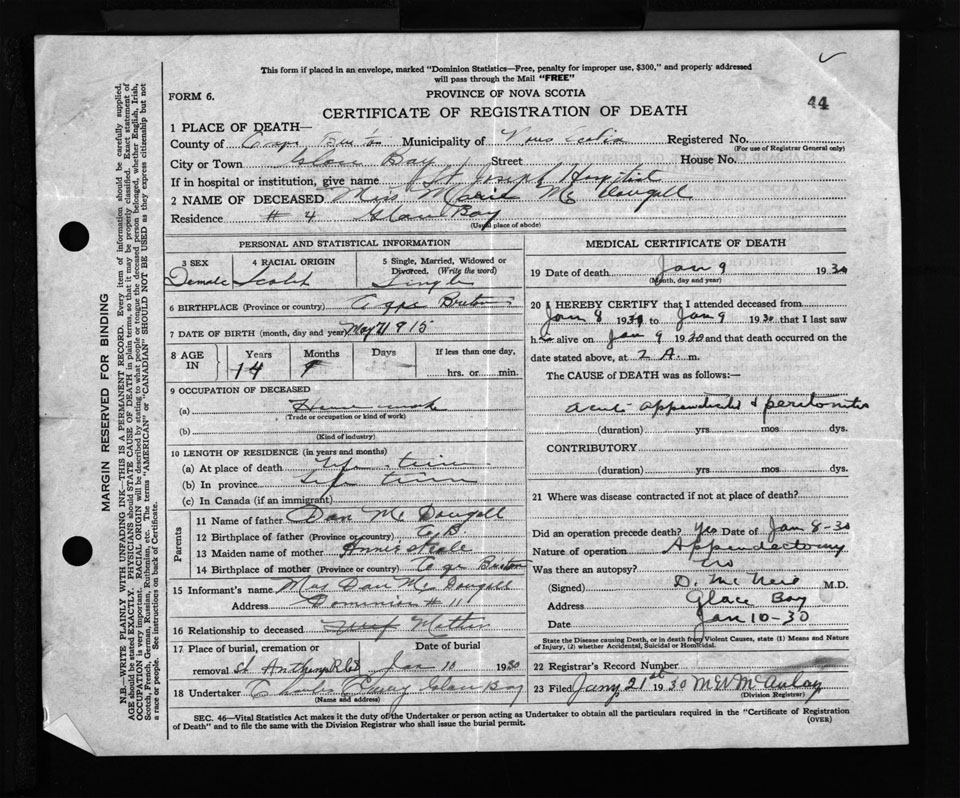 This form if placed in an envelope, marked "Dominion Statistics—Free, penalty for improper use, $300," and properly addressed
will pass through the Mail "FREE"
FORM 6.
PROVINCE OF NOVA SCOTIA
44
CERTIFICATE OF REGISTRATION OF DEATH
1 PLACE OF DEATH—
County of Cape Municipality of Registered No.
(For use of Registrar General only)
City or Town Glace Bay Street House No.
If in hospital or institution, give name St Joseph Hospital
2 NAME OF DECEASED Miss Mc Dougall
Residence # 4 Glace Bay
(Usual place of abode)
PERSONAL AND STATISTICAL INFORMATION
3 SEX 4 RACIAL ORIGIN 5 Single, Married, Widowed or
Divorced. (Write the word)
Female Scotch Single
6 BIRTHPLACE (Province or country) Cape Breton
7 DATE OF BIRTH (month, day and year)
8 AGE IN Years Months Days If less than one day,
14 hrs. or min.
9 OCCUPATION OF DECEASED
(a)
(Trade or occupation or kind of work)
(b)
(Kind of industry)
10 LENGTH OF RESIDENCE (in years and months)
(a) At place of death Life time
(b) In province Life time
(c) In Canada (if an immigrant)
Parents
11 Name of father Dan Mc Dougall
12 Birthplace of father (Province or country) C B
13 Maiden name of mother
14 Birthplace of mother (Province or country) Cape Breton
15 Informant's name Mrs Dan Mc Dougall
Address Dominion # 11
16 Relationship to deceased Mother
17 Place of burial, cremation or Date of burial
removal St Anthonys Jan 10 1930
18 Undertaker Glace Bay
(Name and address)
MEDICAL CERTIFICATE OF DEATH
19 Date of death Jan 9 1930
(Month, day and year)
20 I HEREBY CERTIFY that I attended deceased from
Jan 8 1930 to Jan 9 1930 that I last saw
h alive on Jan 9 1930 and that death occurred on the
date stated above, at 2 A. m.
The CAUSE of DEATH was as follows:—
acute appendicitis & peritonitis
(duration) yrs mos dys.
CONTRIBUTORY
(duration) yrs mos dys.
21 Where was disease contracted if not at place of death?
Did an operation precede death? yes Date of Jan 8-30
Nature of operation Appendectomy
Was there an autopsy? no
(Signed) D. McNeil M.D.
Address Glace Bay
Date Jan 10-30
State the Disease causing Death, or in death from Violent Causes, state (1) Means and Nature
of Injury, (2) whether Accidental, Suicidal or Homicidal.
22 Registrar's Record Number
23 Filed Jany 21st 1930 M W McAulay
(Division Registrar)
SEC. 46—Vital Statistics Act makes it the duty of the Undertaker or person acting as Undertaker to obtain all the particulars required in the "Certificate of Registration
of Death" and to file the same with the Division Registrar who shall issue the burial permit.
(OVER)
MARGIN RESERVED FOR BINDING
N.B.—WRITE PLAINLY WITH UNFADING INK—THIS IS A PERMANENT RECORD. Every item of information should be carefully supplied.
AGE should be stated EXACTLY. PHYSICIANS should STATE CAUSE OF DEATH in plain terms, so that it may be properly classified. Exact statement of
OCCUPATION is very important. RACIAL ORIGIN will be described by stating to what people or tongue the deceased person belonged, whether English, Irish,
Scotch, French, German, Russian, Ruthenian, etc. The terms "AMERICAN" or "CANADIAN" SHOULD NOT BE USED as they express citizenship but not
a race or people. See instructions on back of Certificate.